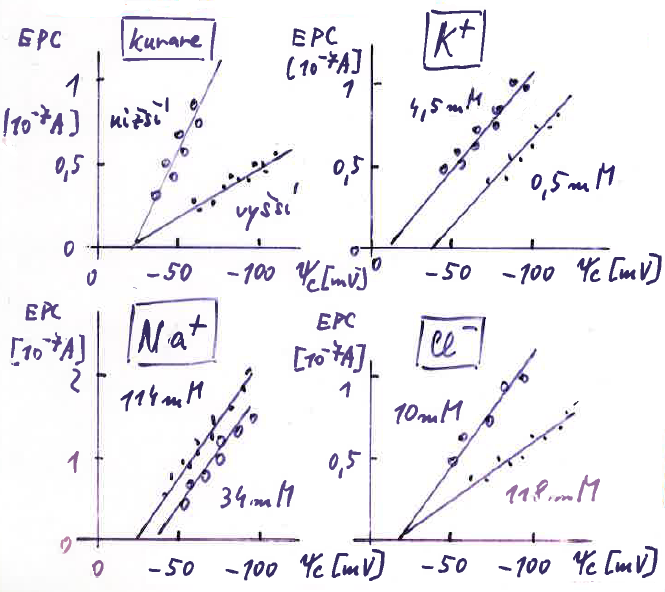 EPC
kurare
1
[10⁻⁷A]
nižší
0,5
vyšší
0
0
-50
-100
Ψc [mV]
EPC
K⁺
[10⁻⁷A]
1
4,5mM
0,5
0,5mM
0
0
-50
-100
Ψc [mV]
EPC
Na⁺
[10⁻⁷A]
2
114mM
1
34mM
0
0
-50
-100
Ψc [mV]
EPC
Cl⁻
[10⁻⁷A]
1
10mM
0,5
118mM
0
-50
-100
Ψc [mV]